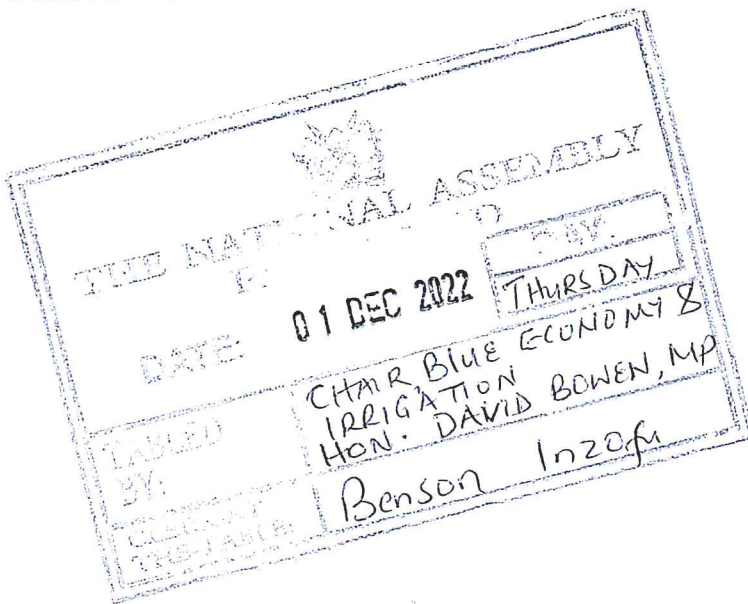 THE NATIONAL ASSEMBLY
DATE: 01 DEC 2022
DAY:
THURSDAY
TABLED
BY:
CHAIR, BLUE ECONOMY &
IRRIGATION
HON. DAVID BOWEN, MP
CLERK AT
THE-TABLE:
Benson Inzofu